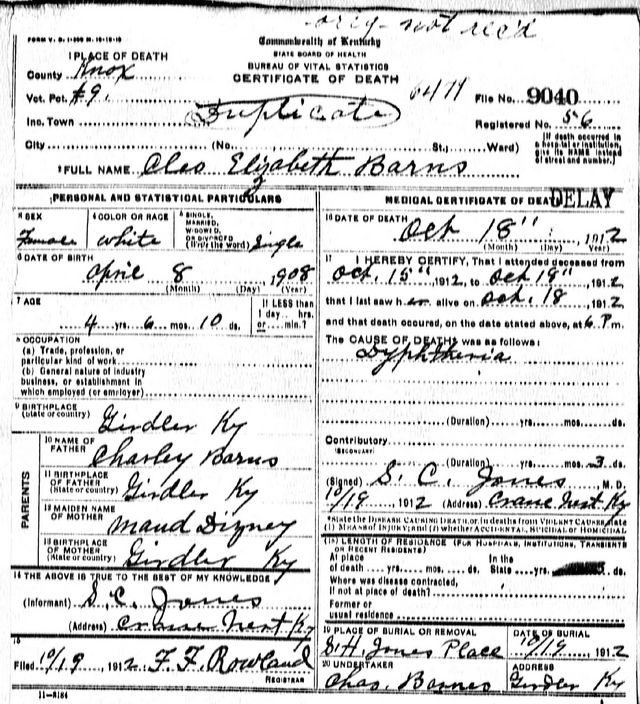 orig- not rec'd
FORM V. S. 1-
Commonwealth of Kentucky
STATE BOARD OF HEALTH
BUREAU OF VITAL STATISTICS
CERTIFICATE OF DEATH
1 PLACE OF DEATH
County Knox
Vot. Pct. #9.
Inc. Town
Duplicate
6479
File No. 9040
Registered No. 56
City (No. St.; Ward)
[If death occurred in a hospital or institution, give its NAME instead of street and number.]
2 FULL NAME Cleo Elizabeth Barns
PERSONAL AND STATISTICAL PARTICULARS
3 SEX
Female
4 COLOR OR RACE
white
5 SINGLE, MARRIED, WIDOWED, OR DIVORCED (Write the word) Single
6 DATE OF BIRTH
April 8 1908
(Month) (Day) (Year)
7 AGE
4 yrs. 6 mos. 10 ds.
If LESS than 1 day.. hrs. or.... min.?
8 OCCUPATION
(a) Trade, profession, or particular kind of work
(b) General nature of industry business, or establishment in which employed (or employer)
9 BIRTHPLACE
(state or country) Girdler Ky
PARENTS
10 NAME OF FATHER Charley Barns
11 BIRTHPLACE OF FATHER (State or country) Girdler Ky
12 MAIDEN NAME OF MOTHER Maud Dizney
13 BIRTHPLACE OF MOTHER (State or country) Girdler Ky
14 THE ABOVE IS TRUE TO THE BEST OF MY KNOWLEDGE
(Informant) S. C. Jones
(Address) Crane Nest Ky
15
Filed 10/19, 1912 F. F. Rowland
REGISTRAR
11-8184
MEDICAL CERTIFICATE OF DEATH
DELAY
16 DATE OF DEATH
Oct 18" 1912
(Month) (Day) (Year)
17 I HEREBY CERTIFY, That I attended deceased from
Oct. 15", 1912, to Oct 19", 1912
that I last saw her alive on Oct. 18, 1912
and that death occured, on the date stated above, at 6 P.m.
The CAUSE OF DEATH was as follows:
Dyphtheria
(Duration) yrs. mos. ds.
Contributory
(SECONDARY)
(Duration) yrs. mos. 3 ds.
(Signed) S. C. Jones, M. D.
10/19 1912 (Address) Crane Nest Ky
*State the DISEASE CAUSING DEATH, or, in deaths from VIOLENT CAUSES, state
(1) MEANS OF INJURY; and (2) whether ACCIDENTAL, SUICIDAL or HOMICIDAL
18 LENGTH OF RESIDENCE (FOR HOSPITALS, INSTITUTIONS, TRANSIENTS OR RECENT RESIDENTS)
At place of death yrs. mos. ds. In the State yrs. ds.
Where was disease contracted, if not at place of death?
Former or usual residence
19 PLACE OF BURIAL OR REMOVAL
S. H. Jones Place
DATE OF BURIAL
10/19 1912
20 UNDERTAKER
Chas. Barnes
ADDRESS
Girdler Ky